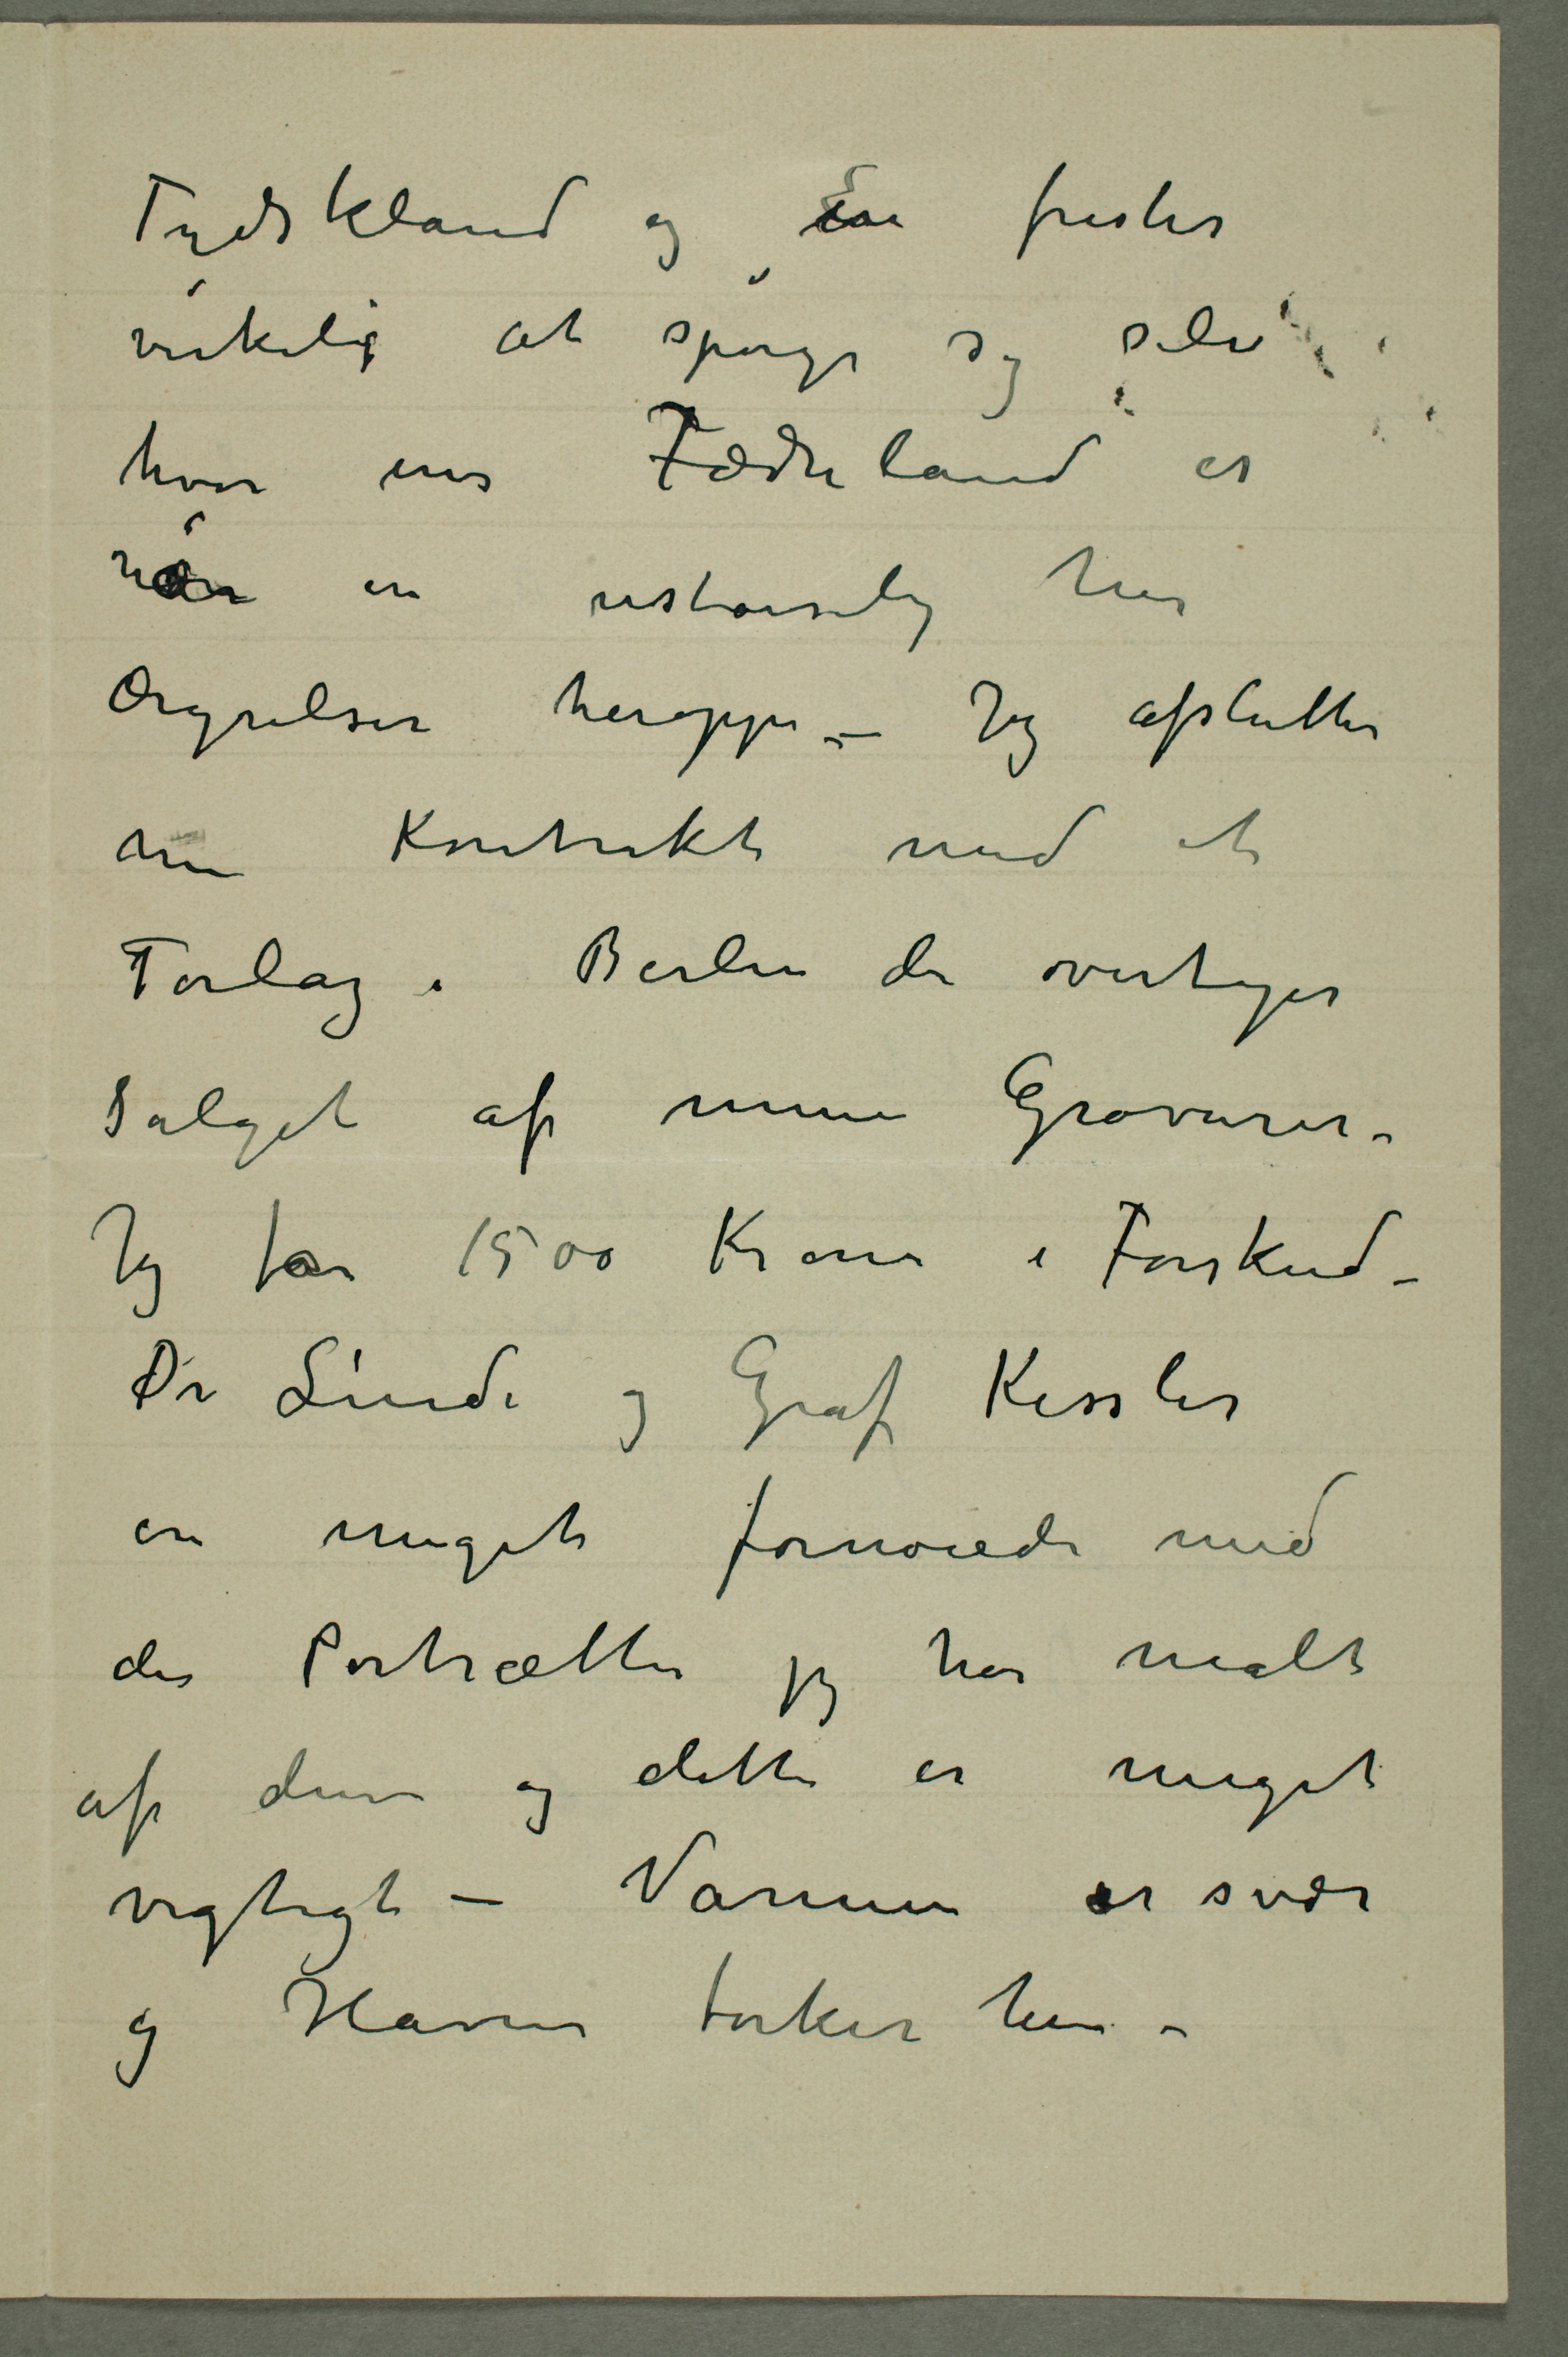 Tydskland og En frister
virkelig at spørge sig selv
hvor ens Fædreland er
når en ustanselig har
Ærgrelser heroppe – Jeg afslutter
nu Kontrakt med et
Forlag i Berlin der overtager
Salget af mine Gravurer –
Jeg får 1500 Kroner i Forskud –
Dr Linde og Graf Kessler
er meget fornøiede med
de Portrætter jeg har malt
af dem og dette er meget
vigtigt – Varmen er svær
og Haven tørker hen –